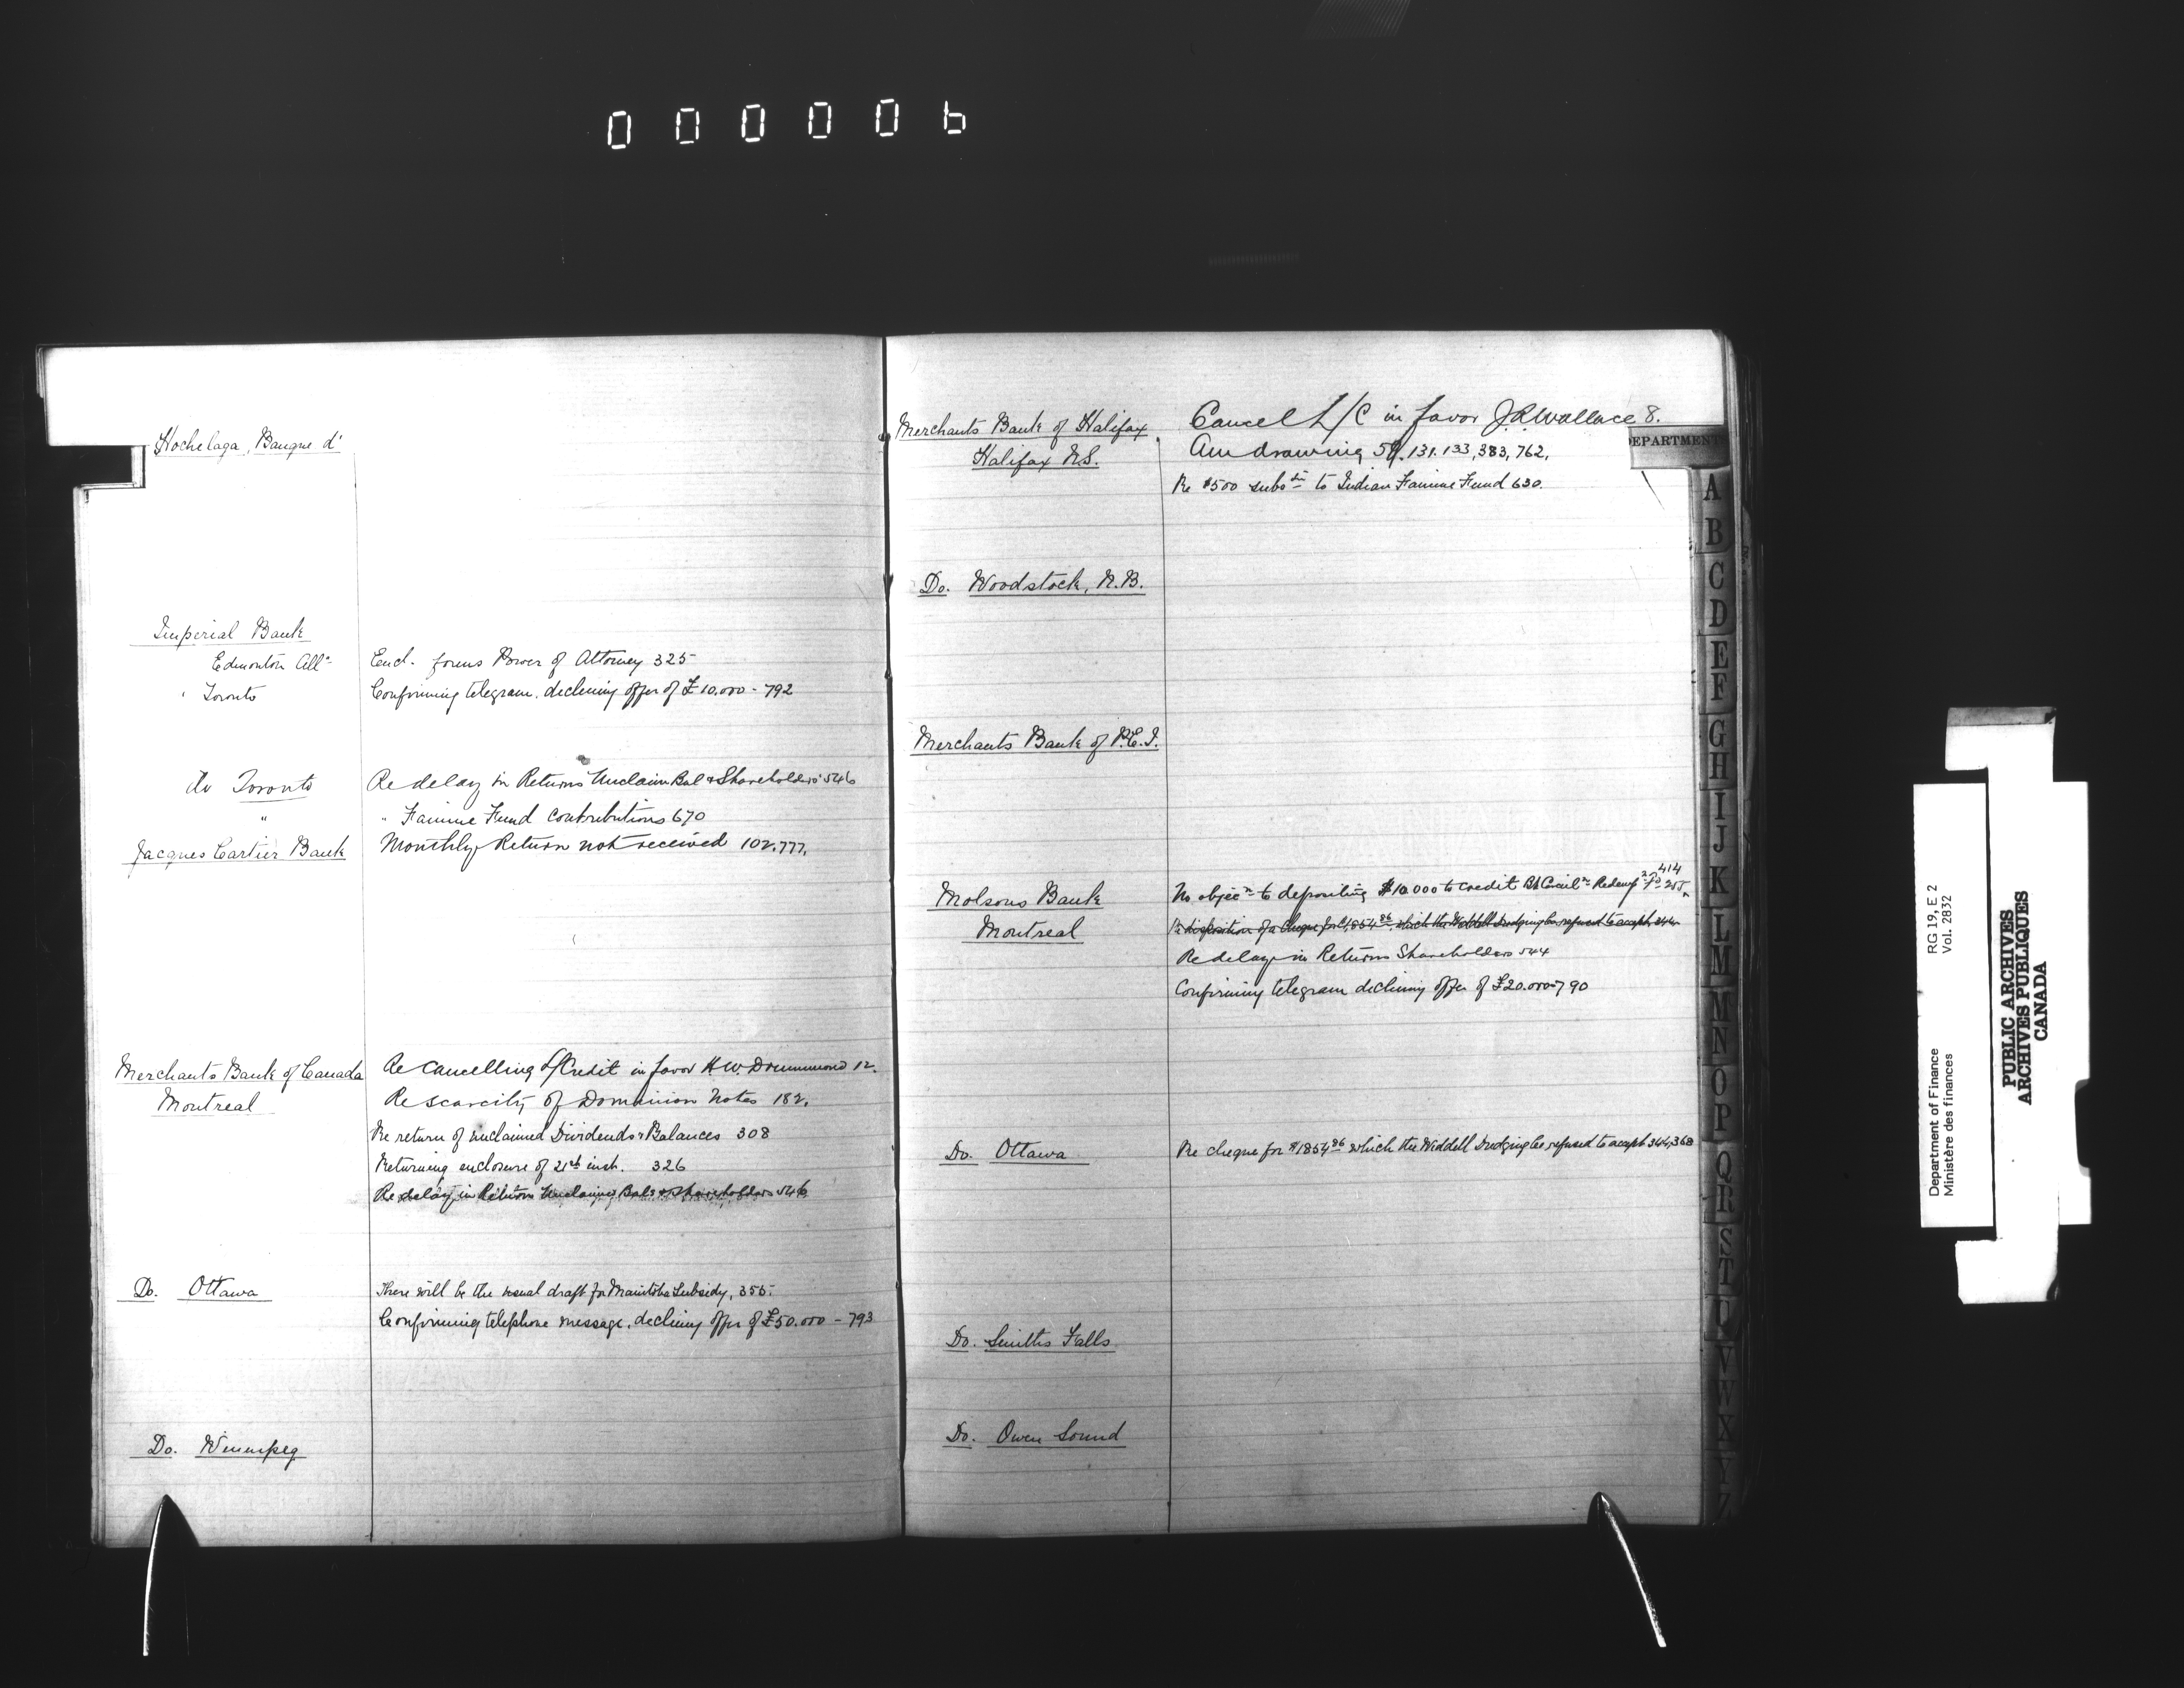 000006
Hochelaga, Banque d'
Imperial Bank
Edmonton Alta
Encl. forms Power of Attorney 325
" Toronto
Confirming telegram, declining offer of £10.000 - 792
do Toronto
Re delay in Returns Unclaim Bal & Shareholders 546
"
" Famine Fund contributions 670
Jacques Cartier Bank
Monthly Return not received 102, 777,
Merchants Bank of Canada
Montreal
Re cancelling of Credit in favor H.W. Drummond 12.
Re scarcity of Dominion Notes 182.
Re return of unclaimed Dividends & Balances 308
Returning enclosure of 21st inst. 326
Re delay in Returns Unclaimed Bals & Shareholders 546
Do. Ottawa
There will be the usual draft for Manitoba Subsidy, 355.
Confirming telephone message, declining offer of £50.000 - 793
Do. Winnipeg
Merchants Bank of Halifax
Halifax N.S.
Cancel L/C in favor J.R. Wallace 8.
Am drawing 59. 131. 133, 383, 762,
Re $500 subsn to Indian Famine Fund 630.
Do. Woodstock, N.B.
Merchants Bank of P.E.I.
Molsons Bank
Montreal
No objecn to depositing $10.000 to credit Bk Circuln Redemp Fd 255, 414
Re disposition of a cheque for $1,854.86, which the Weddell Dredging Co refused to accept 344
Re delay in Returns Shareholders 544
Confirming telegram declining offer of £20.000-790
Do. Ottawa
Re cheque for $1854.86 which the Weddell Dredging Co refused to accept 344, 368
Do. Smiths Falls
Do. Owen Sound
DEPARTMENT
A
B
C
D
E
F
G
H
I
J
K
L
M
M
N
O
P
Q
R
S
T
U
V
W
X
Y
Z
Department of Finance RG 19, E 2
Ministère des finances Vol. 2832
PUBLIC ARCHIVES
ARCHIVES PUBLIQUES
CANADA